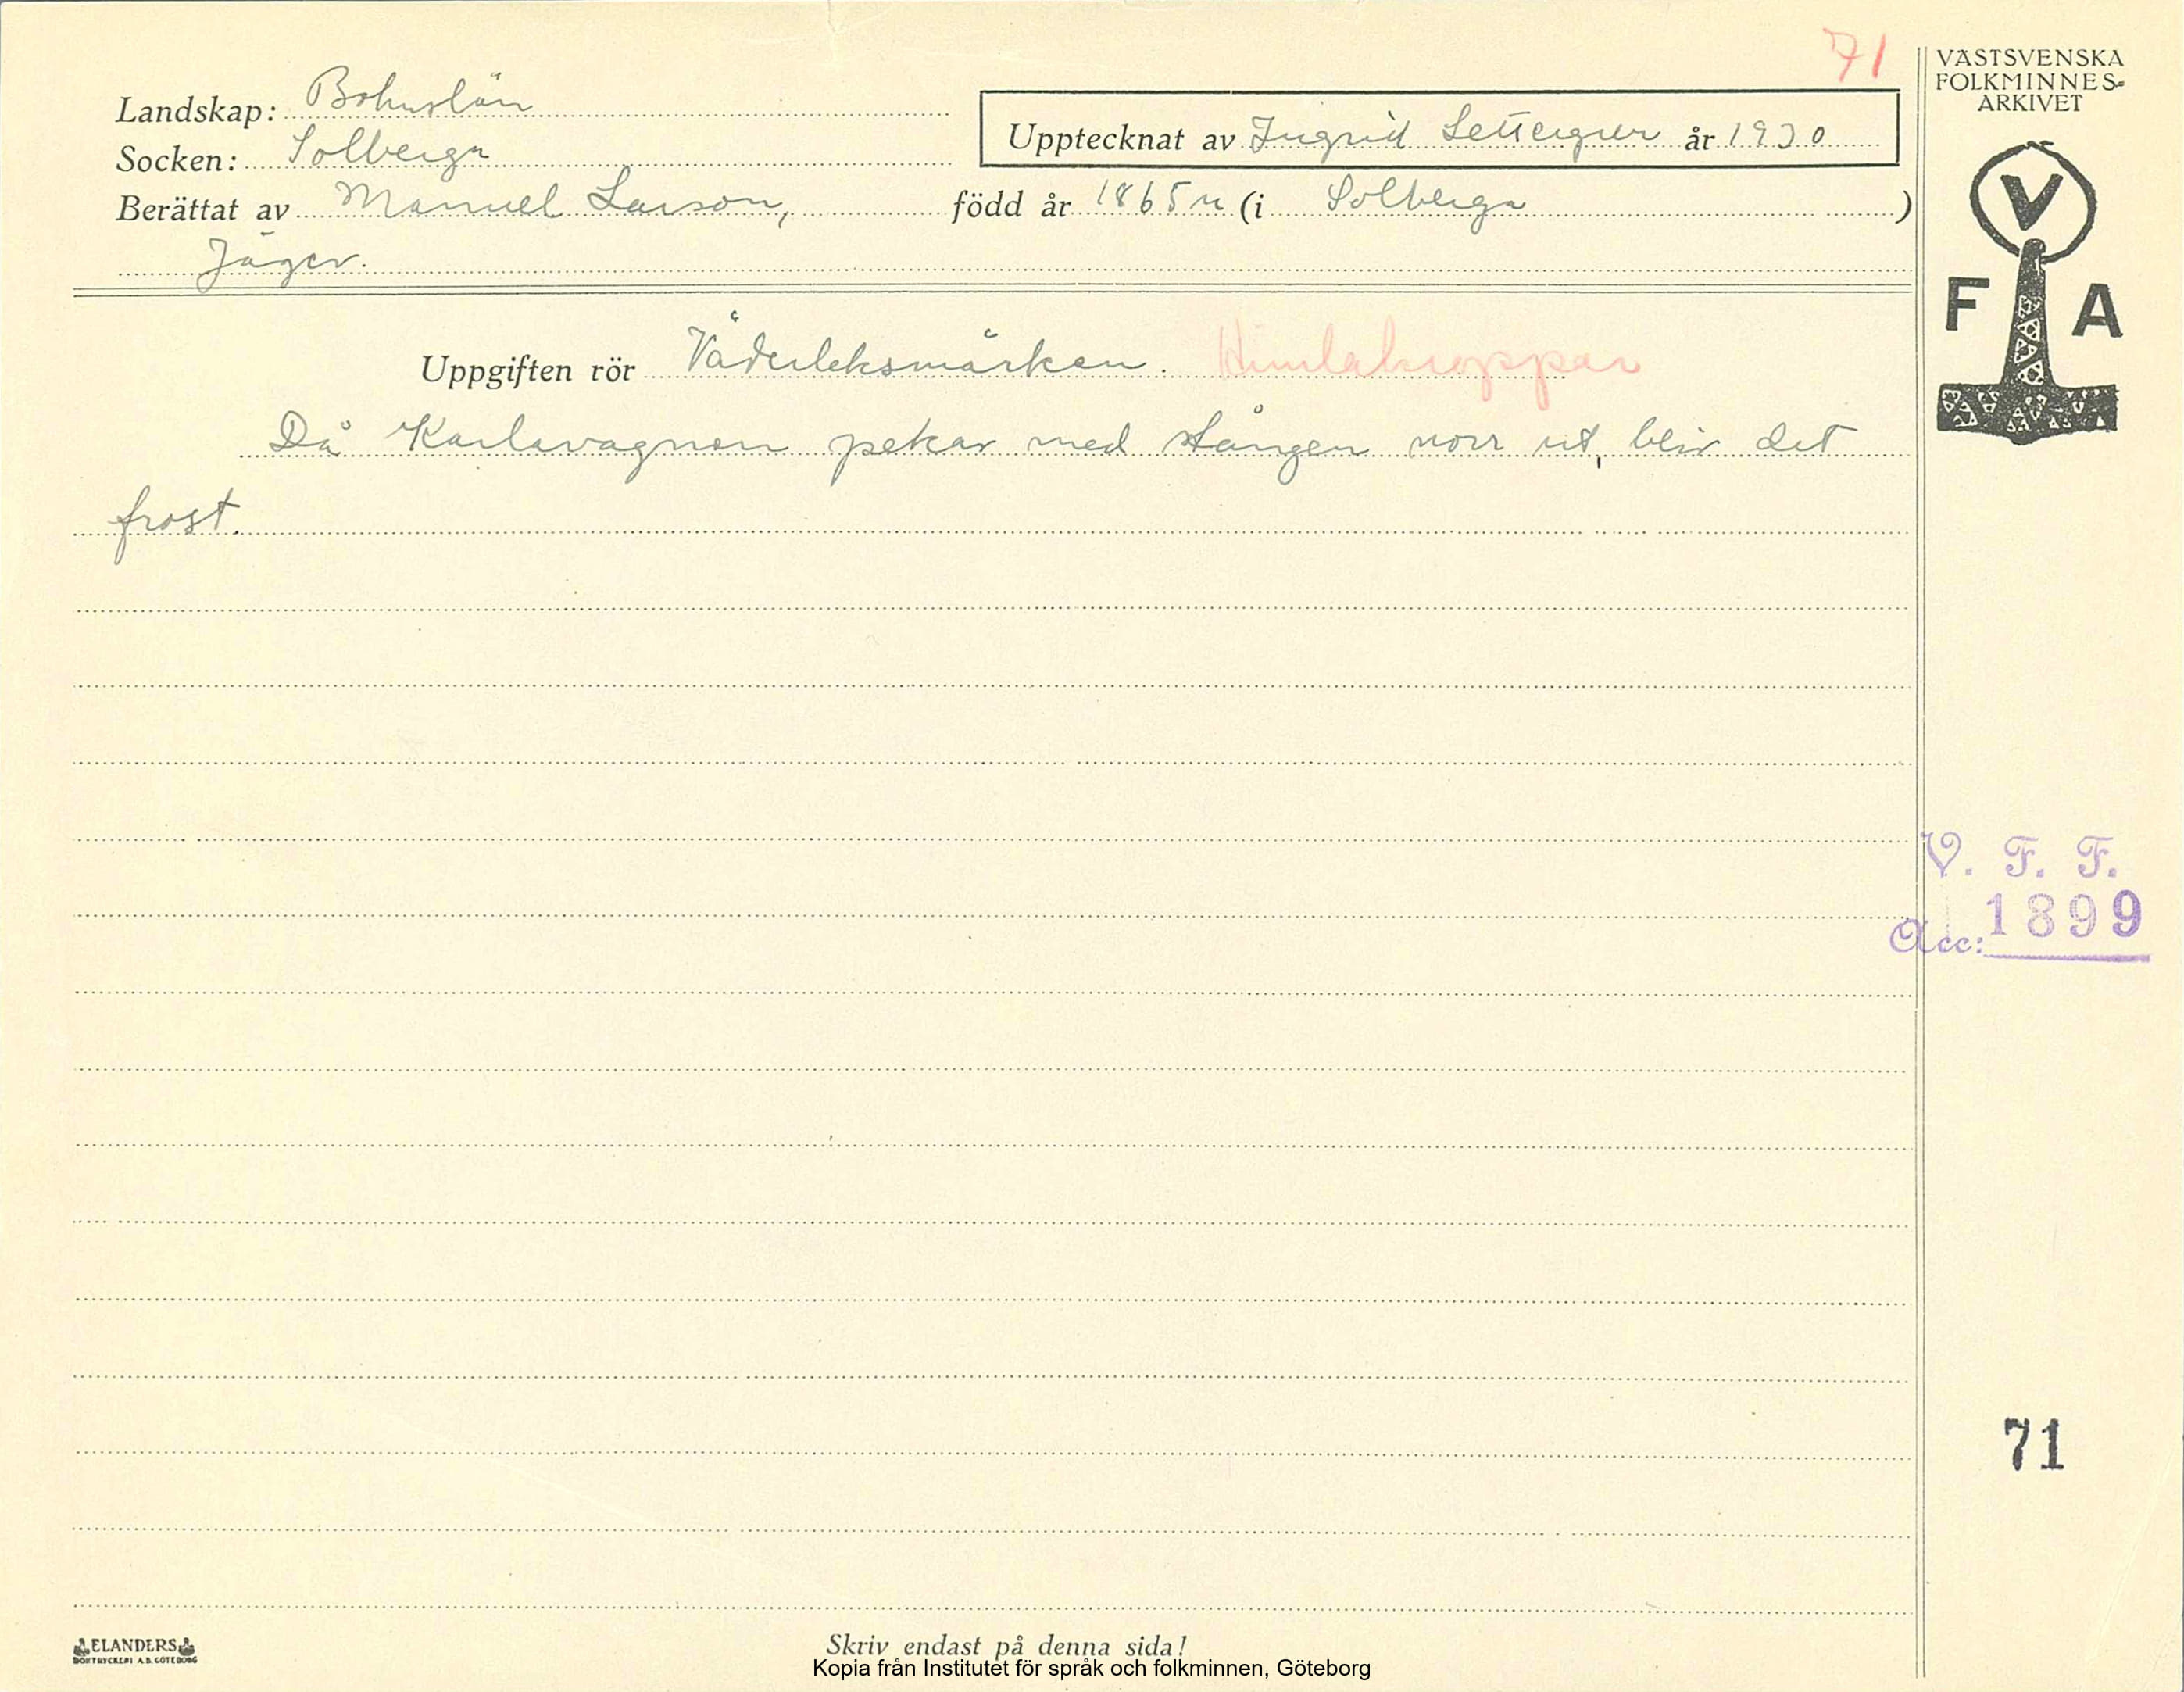 71
VÄSTSVENSKA
FOLKMINNES-
ARKIVET
Landskap: Bohuslän
Upptecknat av Ingrid år 1930
Socken: Solberga
Berättat av Manuel Larson, född år 1865 (i Solberga )
Jäger.
V
F A
Uppgiften rör Väderleksmärken. Himlakroppar
Då Karlavagnen pekar med stången norr ut, blir det
frost.
V. F. F.
Acc: 1899
71
ELANDERS
BOKTRYCKERI A.B. GÖTEBORG
Skriv endast på denna sida!
Kopia från Institutet för språk och folkminnen, Göteborg